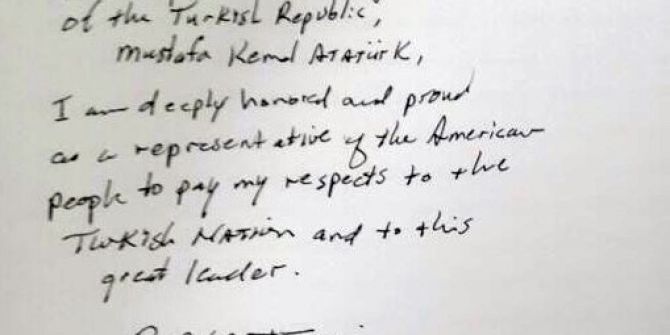 of the Turkish Republic,
Mustafa Kemal ATATürK,
I am deeply honored and proud
as a representative of the American
people to pay my respects to the
Turkish NATION and to this
great leader.